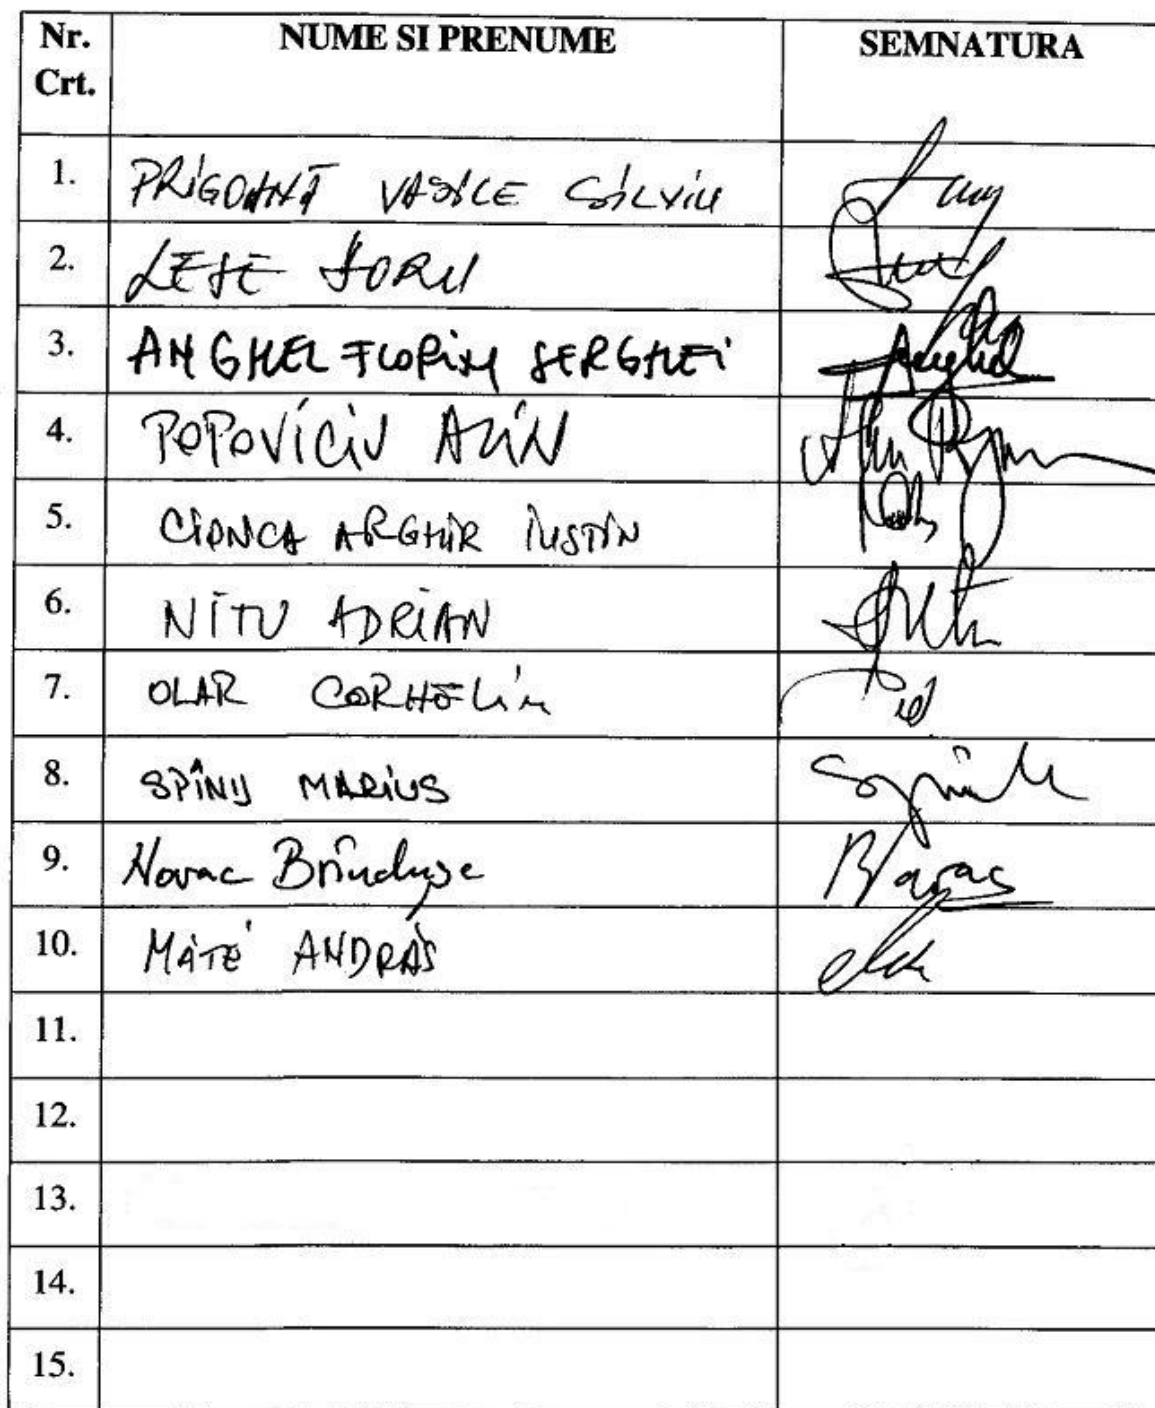 Nr. Crt. NUME SI PRENUME SEMNATURA
1. PRIGOANĂ VASILE SILVIU
2. LESE DORU
3. ANGHEL FLORIN SERGHEI
4. POPOVICIU ALIN
5. CIONCA ARGHIR IUSTIN
6. NITU ADRIAN
7. OLAR CORNELIU
8. SPÎNU MARIUS
9. Novac Brîndușe
10. MÁTÉ ANDRÁS
11.
12.
13.
14.
15.